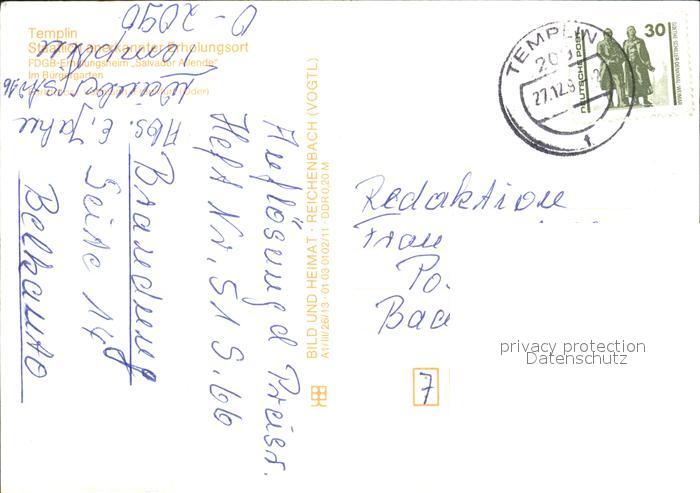 Templin
Staatlich anerkannter Erholungsort
FDGB-Erholungsheim „Salvador Allende"
Im Bürgergarten
BILD UND HEIMAT · REICHENBACH (VOGTL)
A1/III/26/13 · 01 03 0102/11 · DDR 0,20 M
Auflösung d Preisr.
Heft Nr. 51 S. 66
Brandung
Seite 148
Belkanto
Abs. E. Jahn
O - 2090
Templin
TEMPLIN
209
27.12.9
1
DEUTSCHE POST
30
GOETHE-SCHILLER-DENKMAL WEIMAR
Redaktion
Frau
Po.
Bad
7
privacy protection
Datenschutz